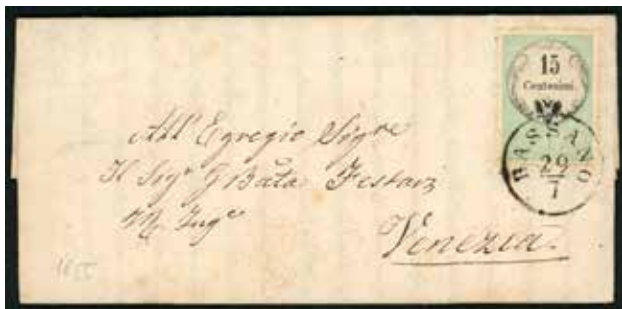 15
Centesimi
BASSANO
29
7
All'Egregio Sigre
Il Sigr GBata
Inge
Venezia
1855